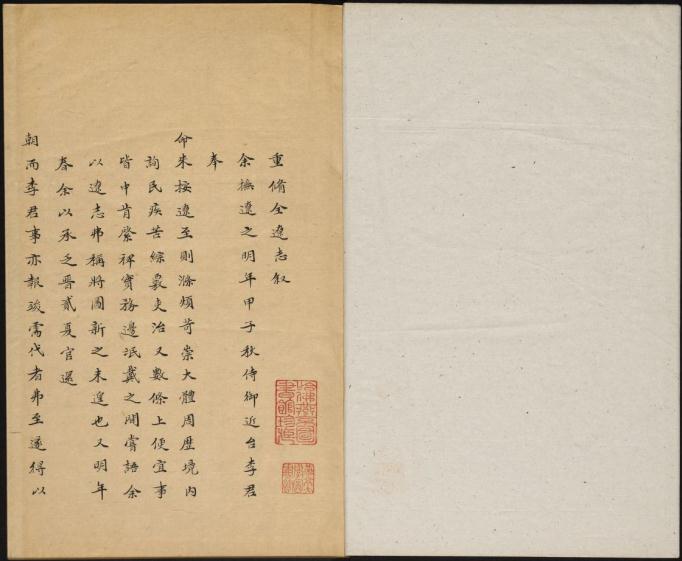 重脩全遼志叙
余撫遼之明年甲子秋侍御近台李君
奉
命來按遼至則滌煩苛崇大體周歷境内
詢民疾苦綜覈吏治又數條上便宜事
皆中肯綮裨實務邊氓戴之間嘗語余
以遼志弗稱將圖新之未遑也又明年
春余以承乏晋貳夏官還
朝而李君事亦報竣需代者弗至遂得以